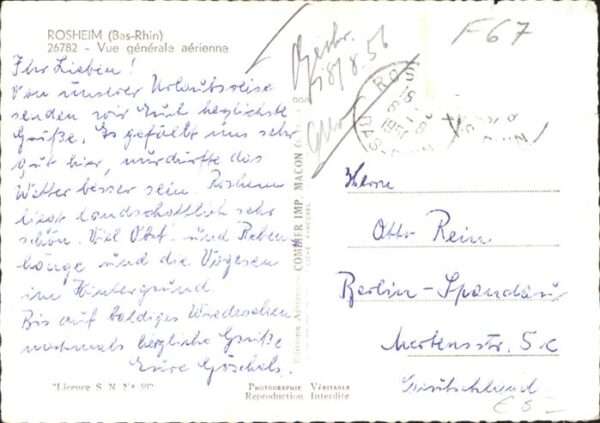 ROSHEIM (Bas-Rhin)
26782 - Vue générale aérienne
Ihr Lieben!
Von unserer Urlaubsreise
senden wir Euch herzlichste
Grüße. Es gefällt uns sehr
gut hier, nur dürfte das
Wetter besser sein. Rosheim
liegt landschaftlich sehr
schön. Viel Obst und Reben-
hänge und die Vogesen
im Hintergrund.
Bis auf baldiges Wiedersehen
nochmals herzliche Grüße
Eure Göschels.
"Licence S. N.
COMBIER IMP. MACON
PHOTOGRAPHIE VÉRITABLE
Reproduction Interdite
18/8.56
F67
ROS
Herrn
Otto Rein
Berlin-Spandau
Mertensstr. 5c
Deutschland